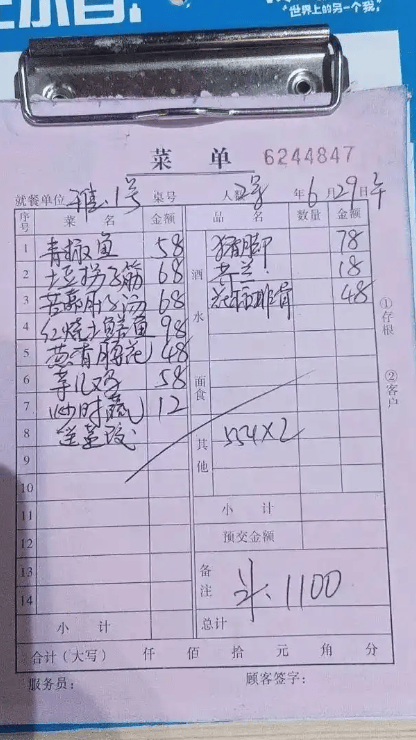 "世界上的另一个我。"
菜 单 6244847
就餐单位 1号 桌号 人数 2号 年 6 月 29 日 午
序号 菜 名 金额 品 名 数量 金额
1 青椒鱼 58 猪脚 78
2 土豆拐子筋 68 酒 18
3 68 水 排骨 48
4 红烧土鳝鱼 98
5 腰花 48
6 58 面食
7 炒时蔬 12
8 送 其他 554×2
9
10
11 小 计
12 预交金额
13 备注 1100
14
小 计 总计
合计（大写） 仟 佰 拾 元 角 分
服务员： 顾客签字：
①存根
②客户